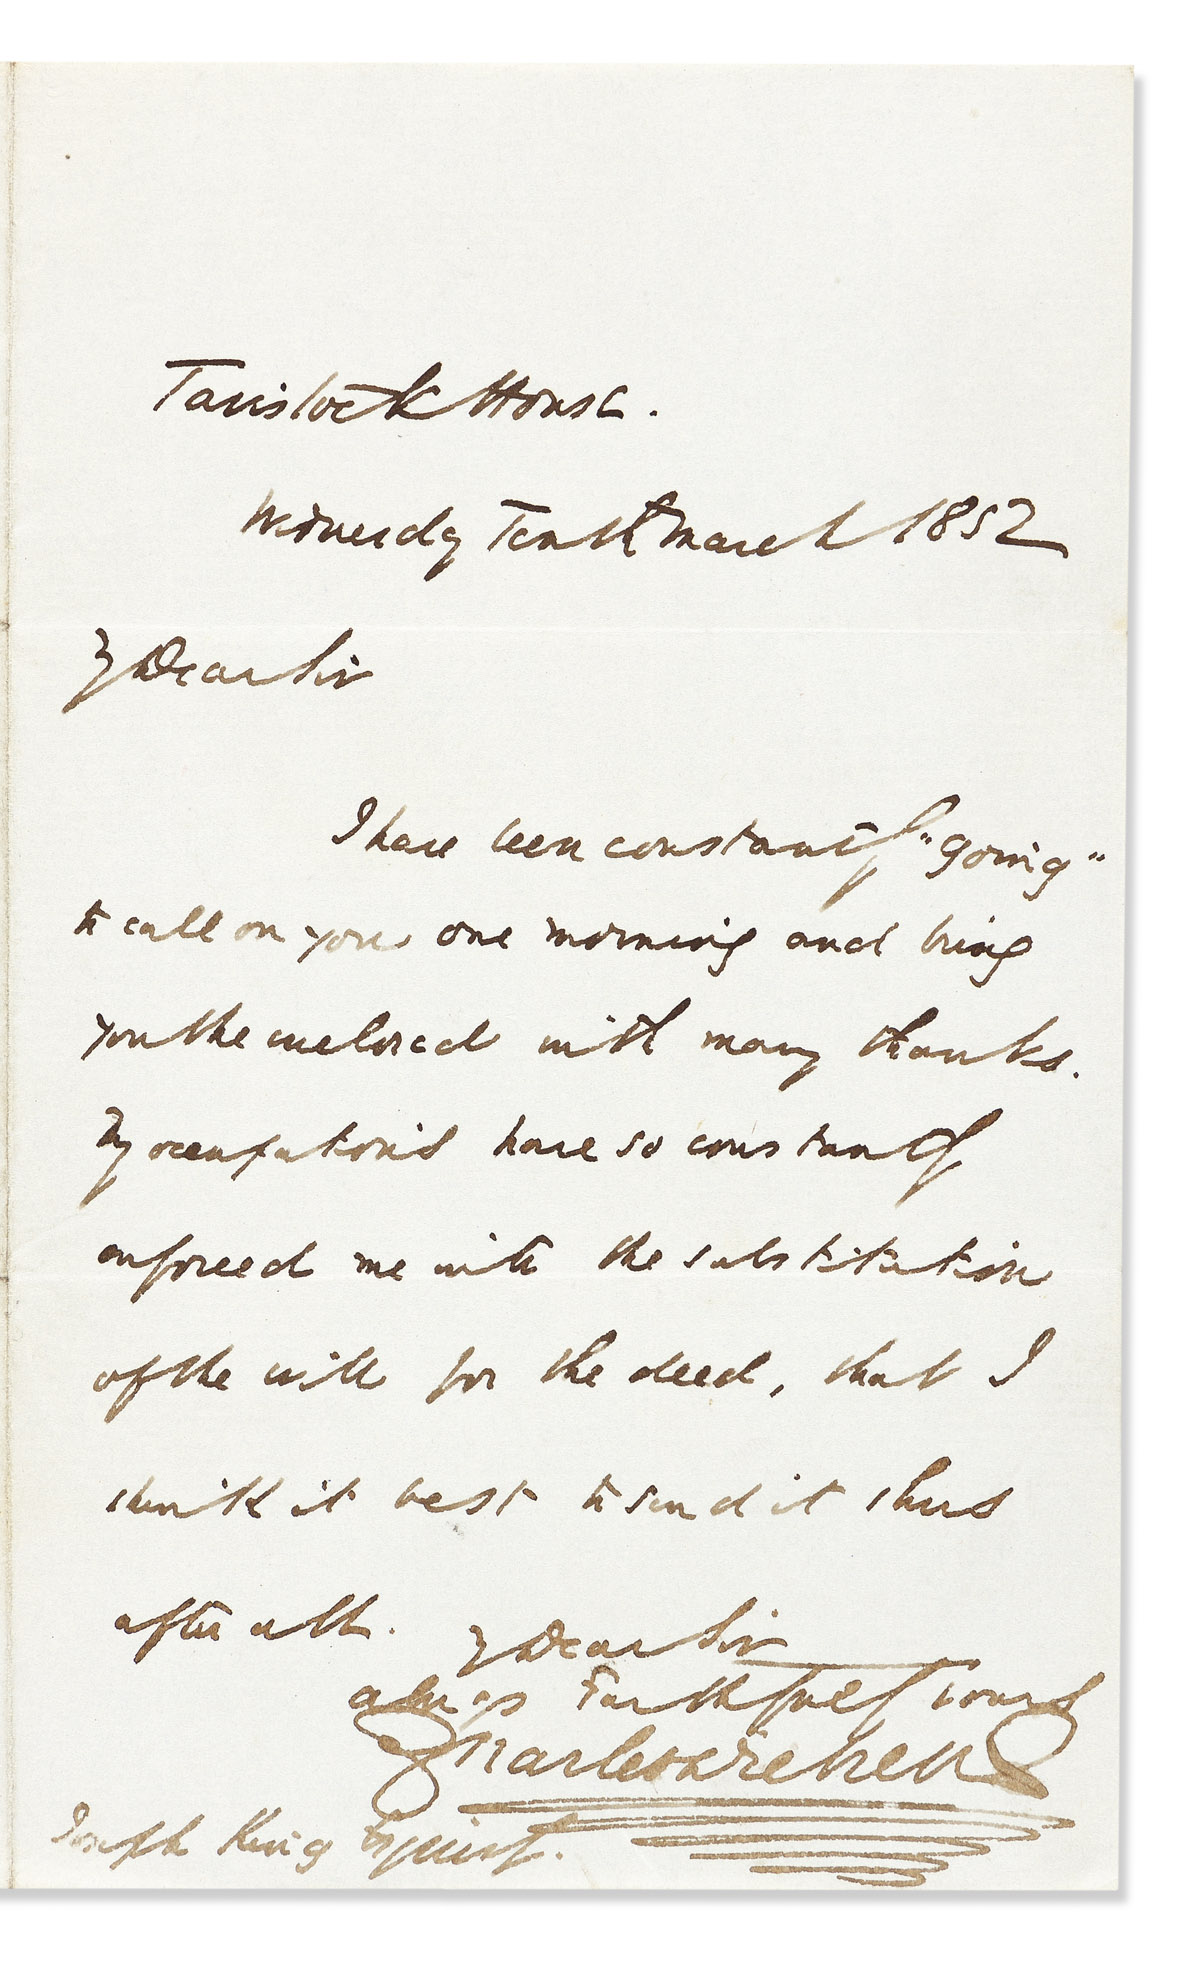 Tavistock House.
Wednesday Tenth March 1852
My Dear Sir
I have been constantly "going"
to call on you one morning and bring
you the enclosed with many thanks.
My occupations have so constantly
enforced me with the substitution
of the will for the deed, that I
think it best to send it thus
after all.
My Dear Sir
always Faithfully Yours
Charles Dickens
Joseph King Esquire.